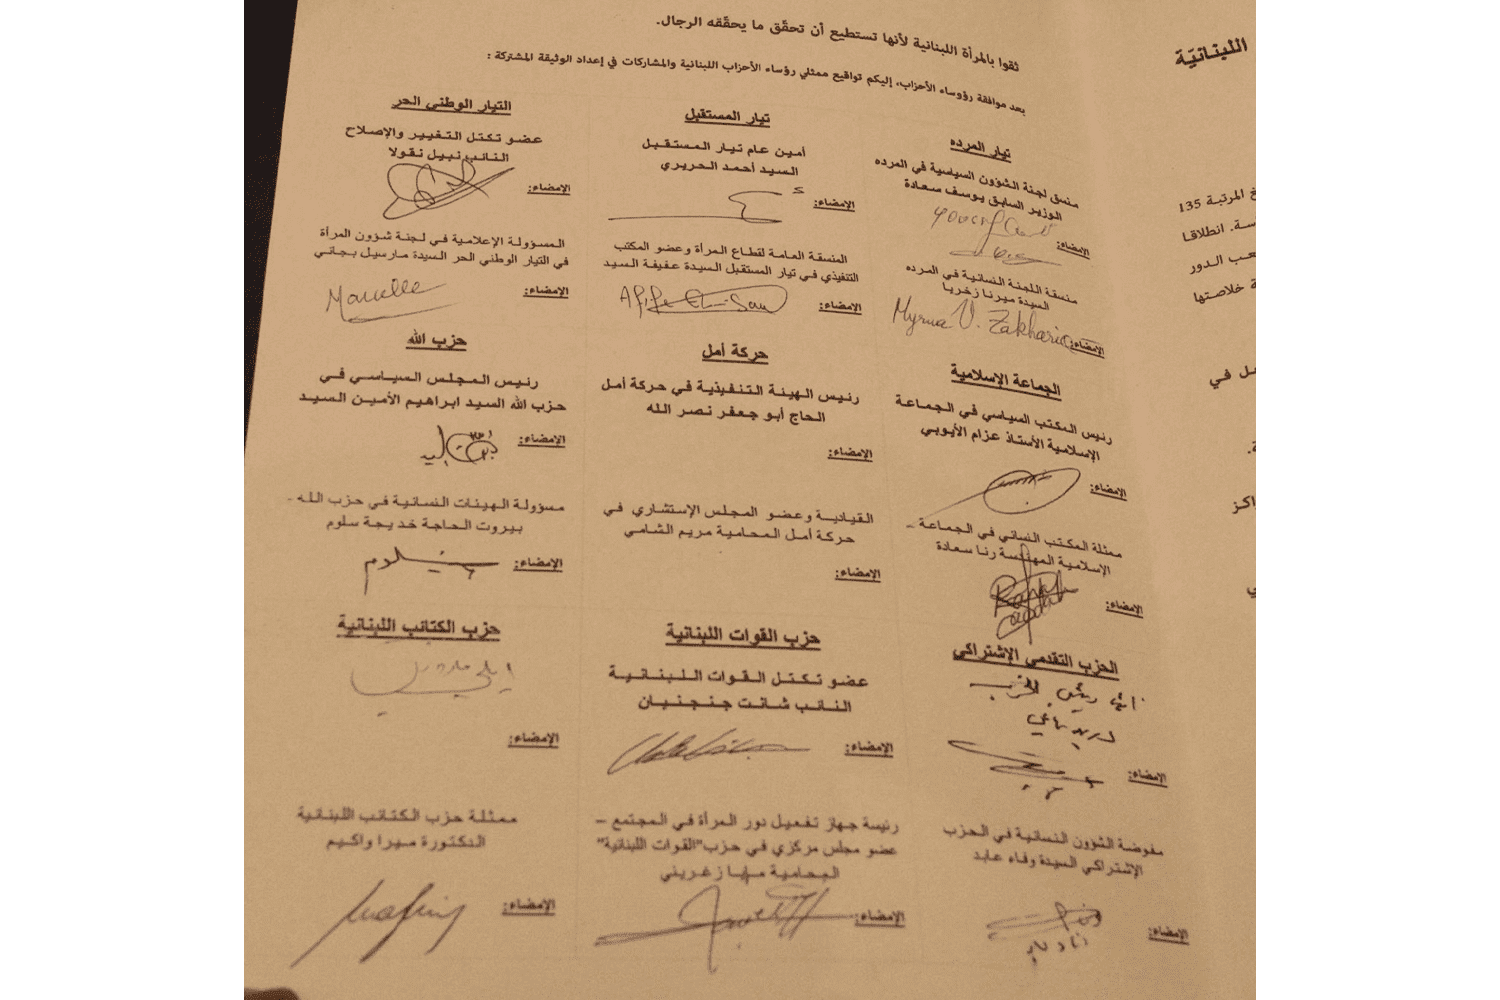 ثقوا بالمرأة اللبنانية لأنها تستطيع أن تحقّق ما يحقّقه الرجال.
بعد موافقة رؤوساء الأحزاب، إليكم تواقيع ممثلي رؤساء الأحزاب اللبنانية والمشاركات في إعداد الوثيقة المشتركة :
تيار المرده
منسق لجنة الشؤون السياسية في المرده
الوزير السابق يوسف سعادة
الإمضاء:
منسقة اللجنة النسائية في المرده
السيدة ميرنا زخريا
Myrna V. Zakharia
الإمضاء:
تيار المستقبل
أمين عام تيار المستقبل
السيد أحمد الحريري
الإمضاء:
المنسقة العامة لقطاع المرأة وعضو المكتب
التنفيذي في تيار المستقبل السيدة عفيفة السيد
الإمضاء:
التيار الوطني الحر
عضو تكتل التغيير والإصلاح
النائب نبيل نقولا
الإمضاء:
المسؤولة الإعلامية في لجنة شؤون المرأة
في التيار الوطني الحر السيدة مارسيل بجاني
الإمضاء:
Marcelle
الجماعة الإسلامية
رئيس المكتب السياسي في الجماعة
الإسلامية الأستاذ عزام الأيوبي
الإمضاء:
ممثلة المكتب النسائي في الجماعة
الإسلامية المهندسة رنا سعادة
الإمضاء:
حركة أمل
رئيس الهيئة التنفيذية في حركة أمل
الحاج أبو جعفر نصر الله
الإمضاء:
القيادية وعضو المجلس الإستشاري في
حركة أمل المحامية مريم الشامي
الإمضاء:
حزب الله
رئيس المجلس السياسي في
حزب الله السيد ابراهيم الأمين السيد
الإمضاء:
مسؤولة الهيئات النسائية في حزب الله -
بيروت الحاجة خديجة سلوم
الإمضاء:
الحزب التقدمي الإشتراكي
الإمضاء:
مفوضة الشؤون النسائية في الحزب
الإشتراكي السيدة وفاء عابد
الإمضاء:
حزب القوات اللبنانية
عضو تكتل القوات اللبنانية
النائب شانت جنجنيان
الإمضاء:
رئيسة جهاز تفعيل دور المرأة في المجتمع –
عضو مجلس مركزي في حزب "القوات اللبنانية"
المحامية مايا زغريني
الإمضاء:
حزب الكتائب اللبنانية
الإمضاء:
ممثلة حزب الكتائب اللبنانية
الدكتورة ميرا واكيم
الإمضاء:
اللبنانيّة
المرتبة 135
انطلاقا
الدور
خلاصتها
في